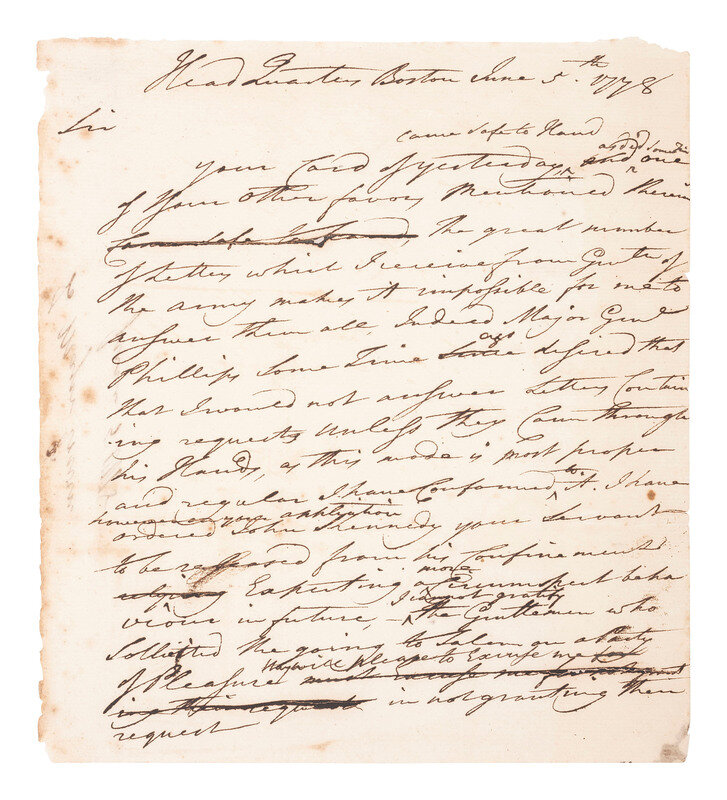 Head Quarters Boston June 5th. 1778
Sir
came safe to Hand
your Card of yesterday, and one
of your other favors mentioned therein
came safe to hand, the great number
of Letters which I receive from Gentn of
the army makes it impossible for me to
answer them all, Indeed Major Genl
ago
Phillips some time since desired that
that I would not answer Letters Contain
ing requests unless they Came through
his Hands, as this mode is most proper
and regular I have Conformed to it. I have
have upon your application
ordered John Kennedy your Servant
to be released from his Confinement
more
relying Expecting a Circumspect beha
I cannot gratify
viour in future, – the Gentlemen who
Sollicited the going to Salem on a party
they will please to Excuse me
of Pleasure must excuse me for not grant
ing their request in not granting their
request